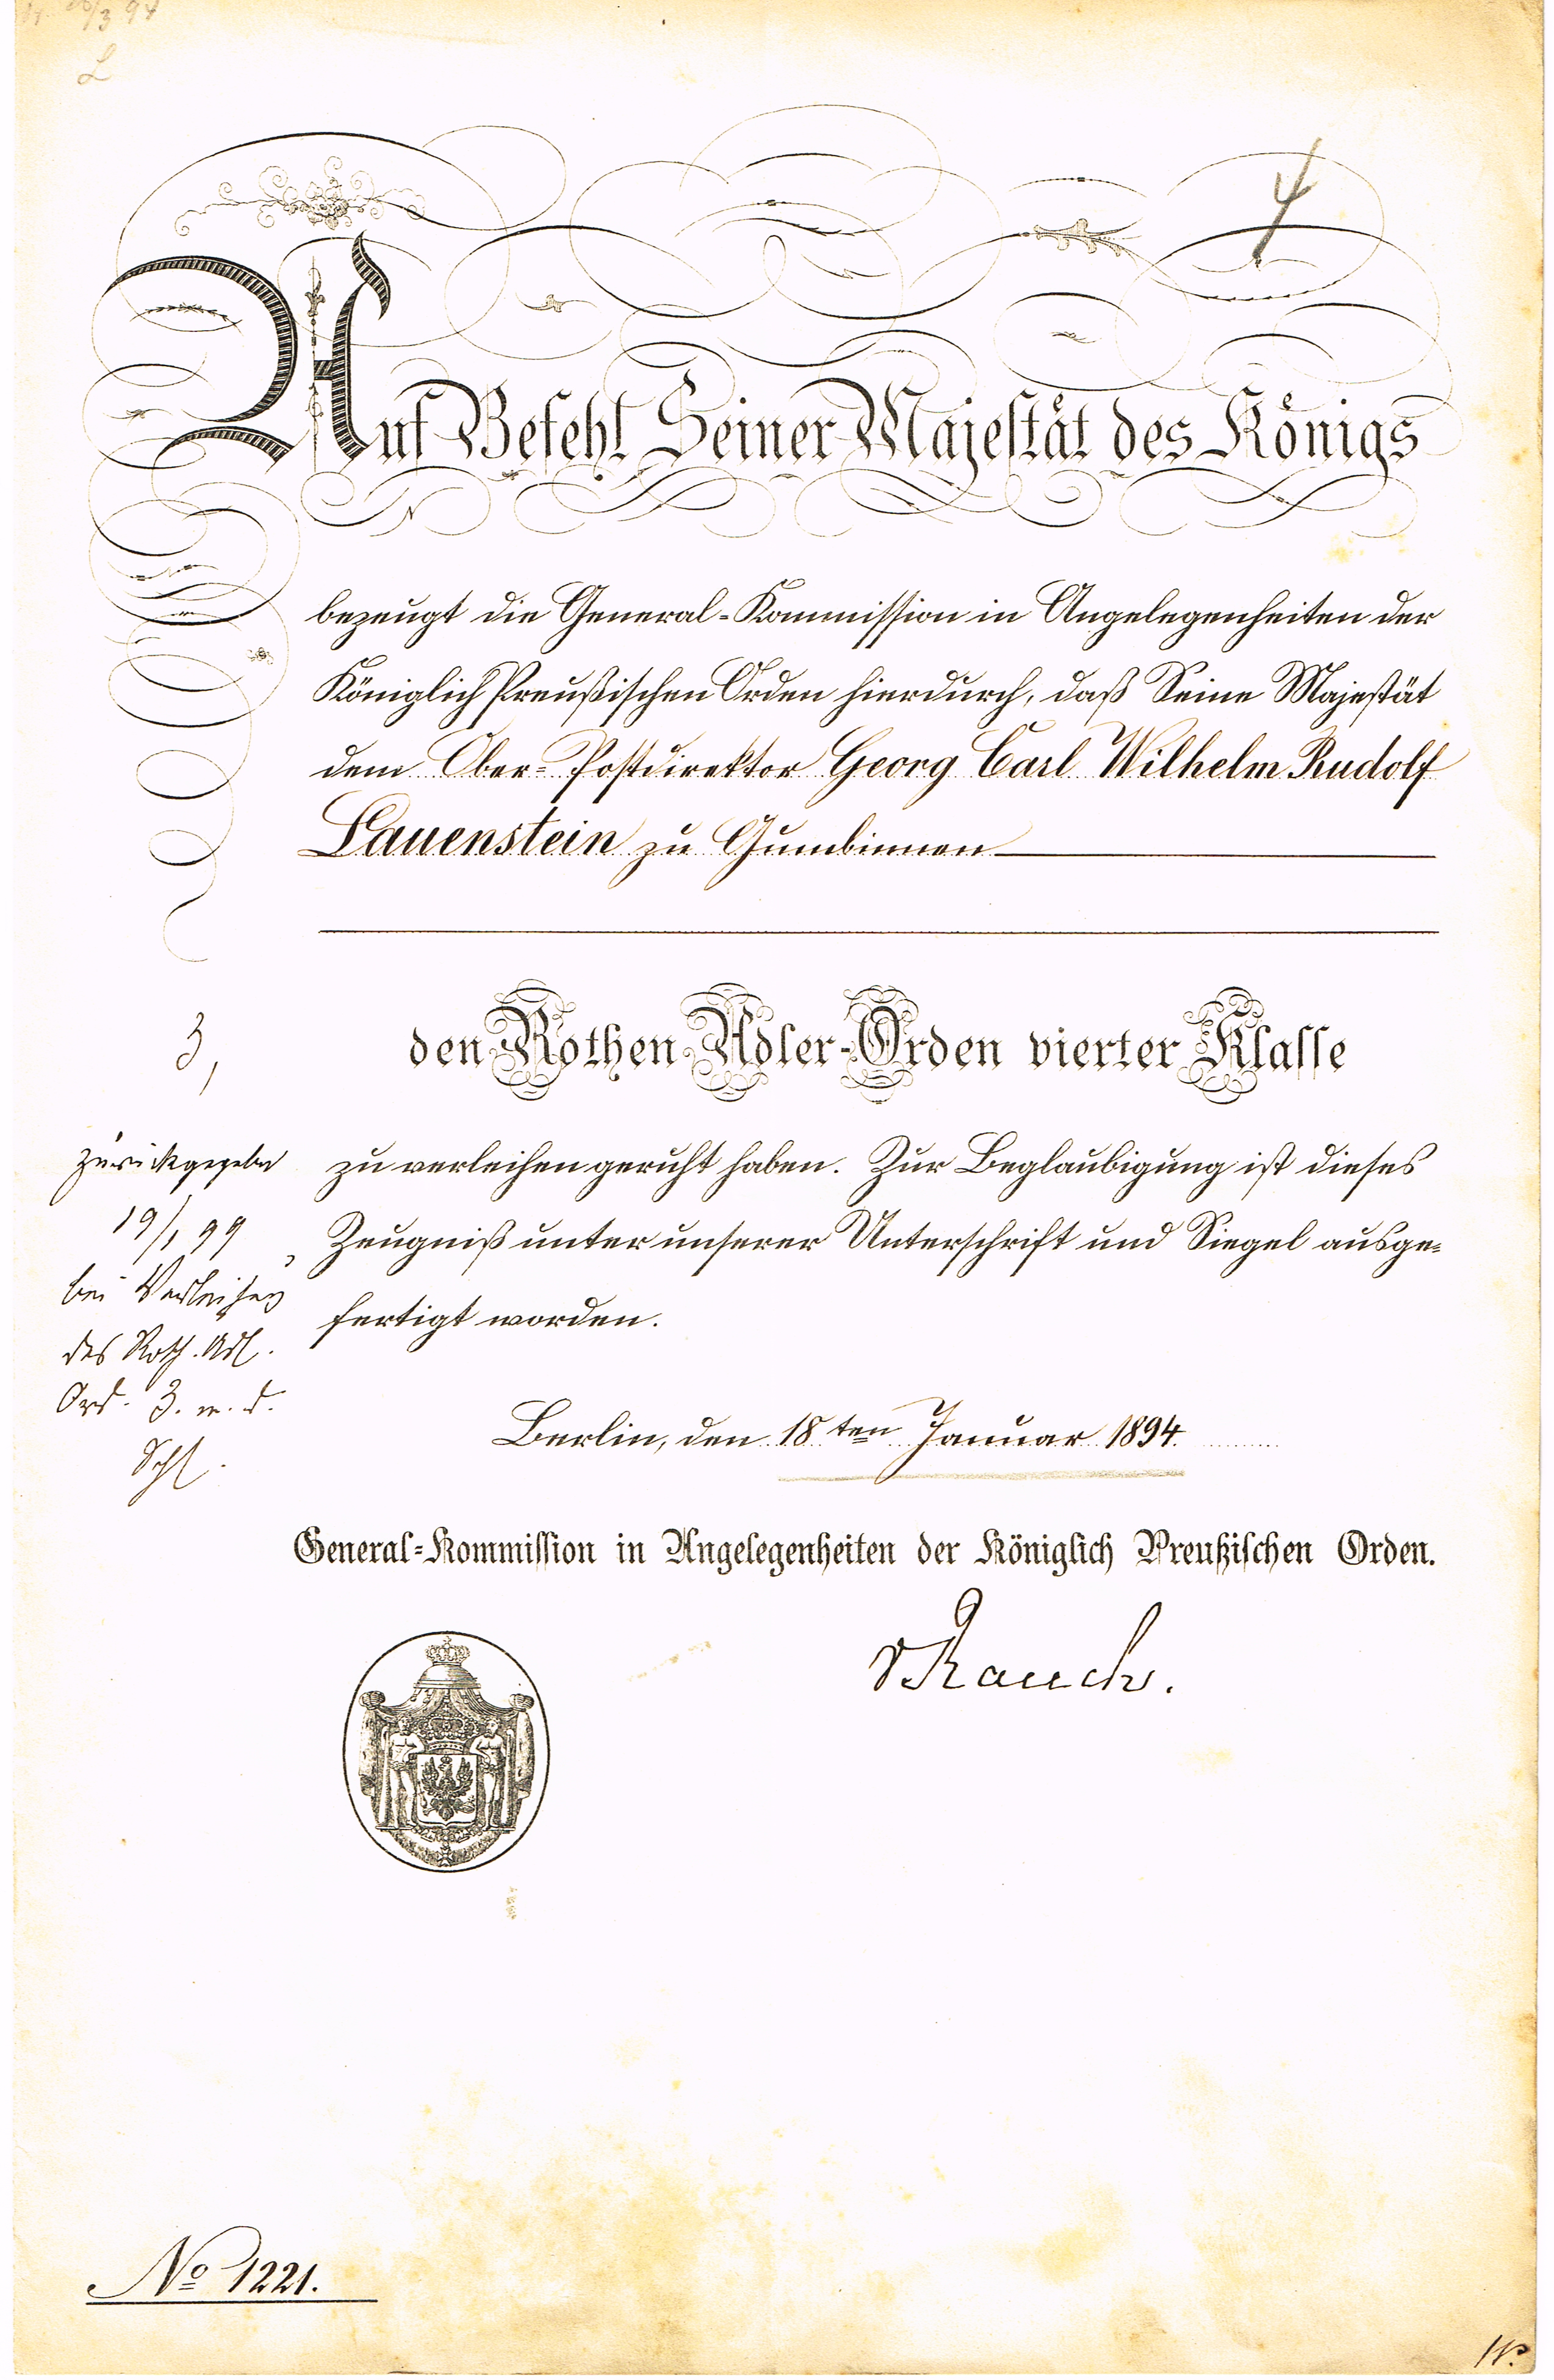 26/3 94
L
4
Auf Befehl Seiner Majestät des Königs
bezeugt die General-Kommission in Angelegenheiten der
Königlich Preußischen Orden hierdurch, daß Seine Majestät
dem Ober-Postdirektor Georg Carl Wilhelm Rudolf
Lauenstein zu Gumbinnen
den Rothen Adler-Orden vierter Klasse
zu verleihen geruht haben. Zur Beglaubigung ist dieses
Zeugniß unter unserer Unterschrift und Siegel ausge-
fertigt worden.
3,
zurückgegeben
19/1 99
bei Verleihung
des Roth. Adl.
Ord. 3. m. d.
Schl.
Berlin, den 18ten Januar 1894.
General-Kommission in Angelegenheiten der Königlich Preußischen Orden.
v Rauch.
No 1221.